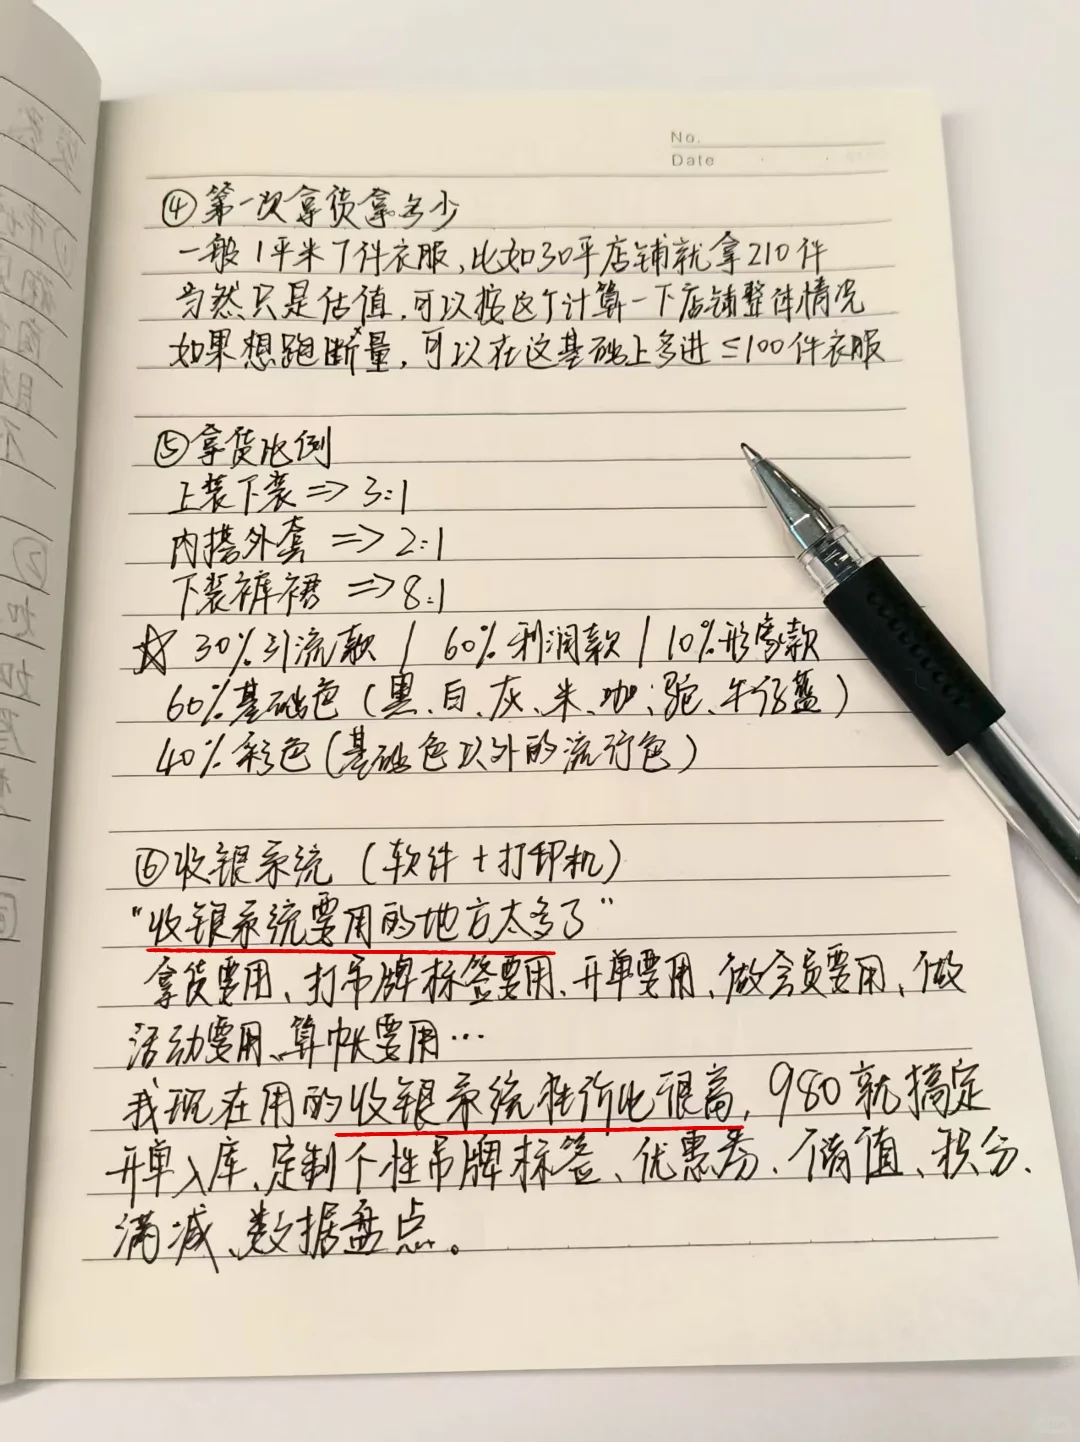 No.
Date
④第一次拿货拿多少
一般1平米7件衣服，比如30平店铺就拿210件
当然只是估值，可以按这个计算一下店铺整体情况
如果想跑断量，可以在这基础上多进≤100件衣服
⑤拿货比例
上装下装=>3:1
内搭外套=>2:1
下装裤裙=>8:1
☆30%引流款 | 60%利润款 | 10%形象款
60%基础色（黑、白、灰、米、咖、驼、牛仔蓝）
40%彩色（基础色以外的流行色）
⑥收银系统（软件+打印机）
“收银系统要用的地方太多了”
拿货要用、打吊牌标签要用、开单要用、做会员要用、做
活动要用、算帐要用…
我现在用的收银系统性价比很高，980就搞定
开单入库、定制个性吊牌标签、优惠券、储值、积分、
满减、数据盘点。